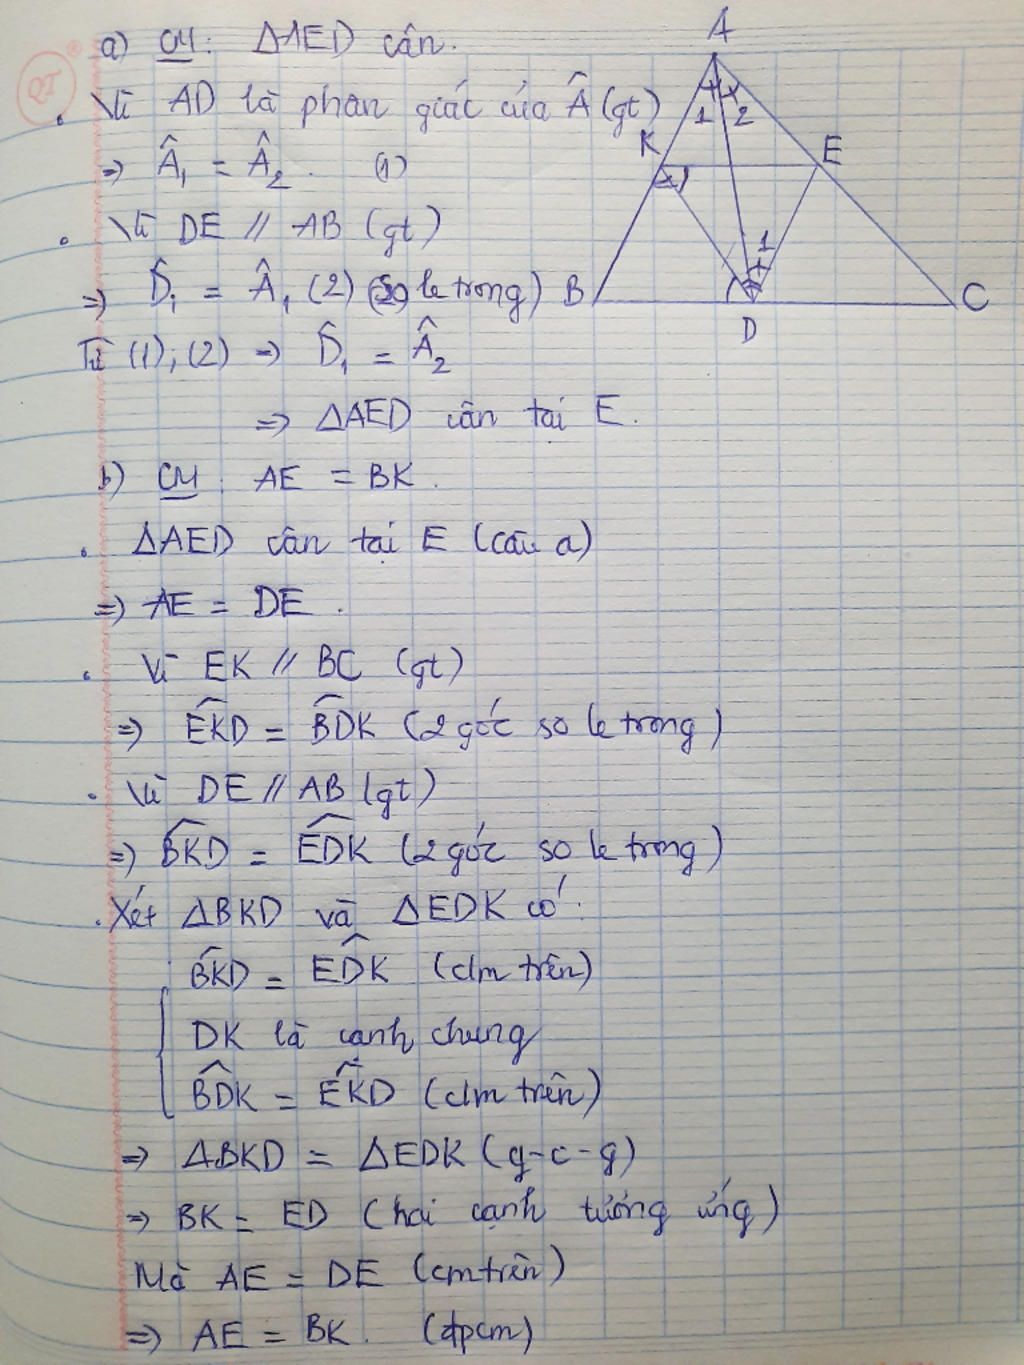 a) CM: ΔAED cân.
QT
. Vì AD là phân giác của Â (gt)
=> Â₁ = Â₂. (1)
. Vì DE // AB (gt)
=> D̂₁ = Â₁ (2) (So le trong)
Từ (1); (2) => D̂₁ = Â₂
=> ΔAED cân tại E.
b) CM: AE = BK.
. ΔAED cân tại E (câu a)
=> AE = DE.
. Vì EK // BC (gt)
=> EK̂D = BD̂K (2 góc so le trong)
. Vì DE // AB (gt)
=> BK̂D = ED̂K (2 góc so le trong)
. Xét ΔBKD và ΔEDK có:
BK̂D = ED̂K (cm trên)
DK là cạnh chung
BD̂K = EK̂D (cm trên)
=> ΔBKD = ΔEDK (g-c-g)
=> BK = ED (hai cạnh tương ứng)
Mà AE = DE (cm trên)
=> AE = BK. (đpcm)
A
1 2
K E
1
B C
D